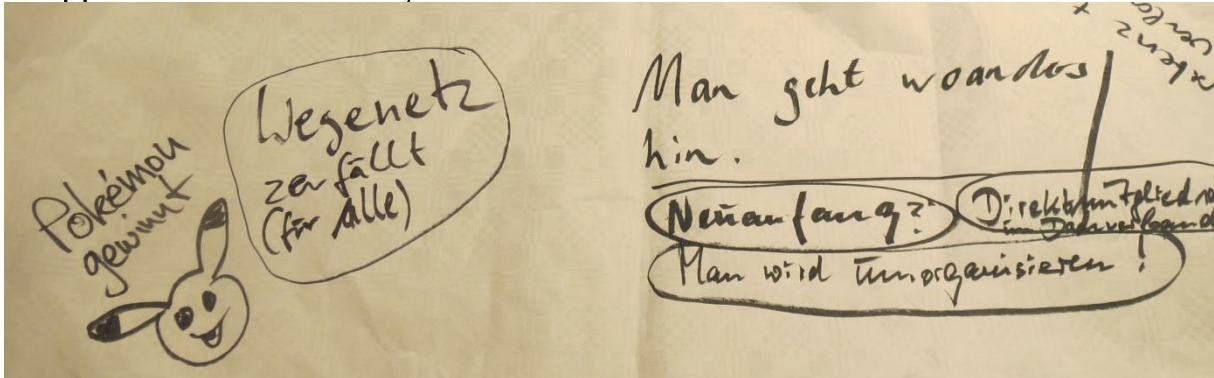 Pokémon
gewinnt
Wegenetz
zerfällt
(für Alle)
Man geht woanders
hin.
Neuanfang?
im Dachverband
Man wird umorganisieren!